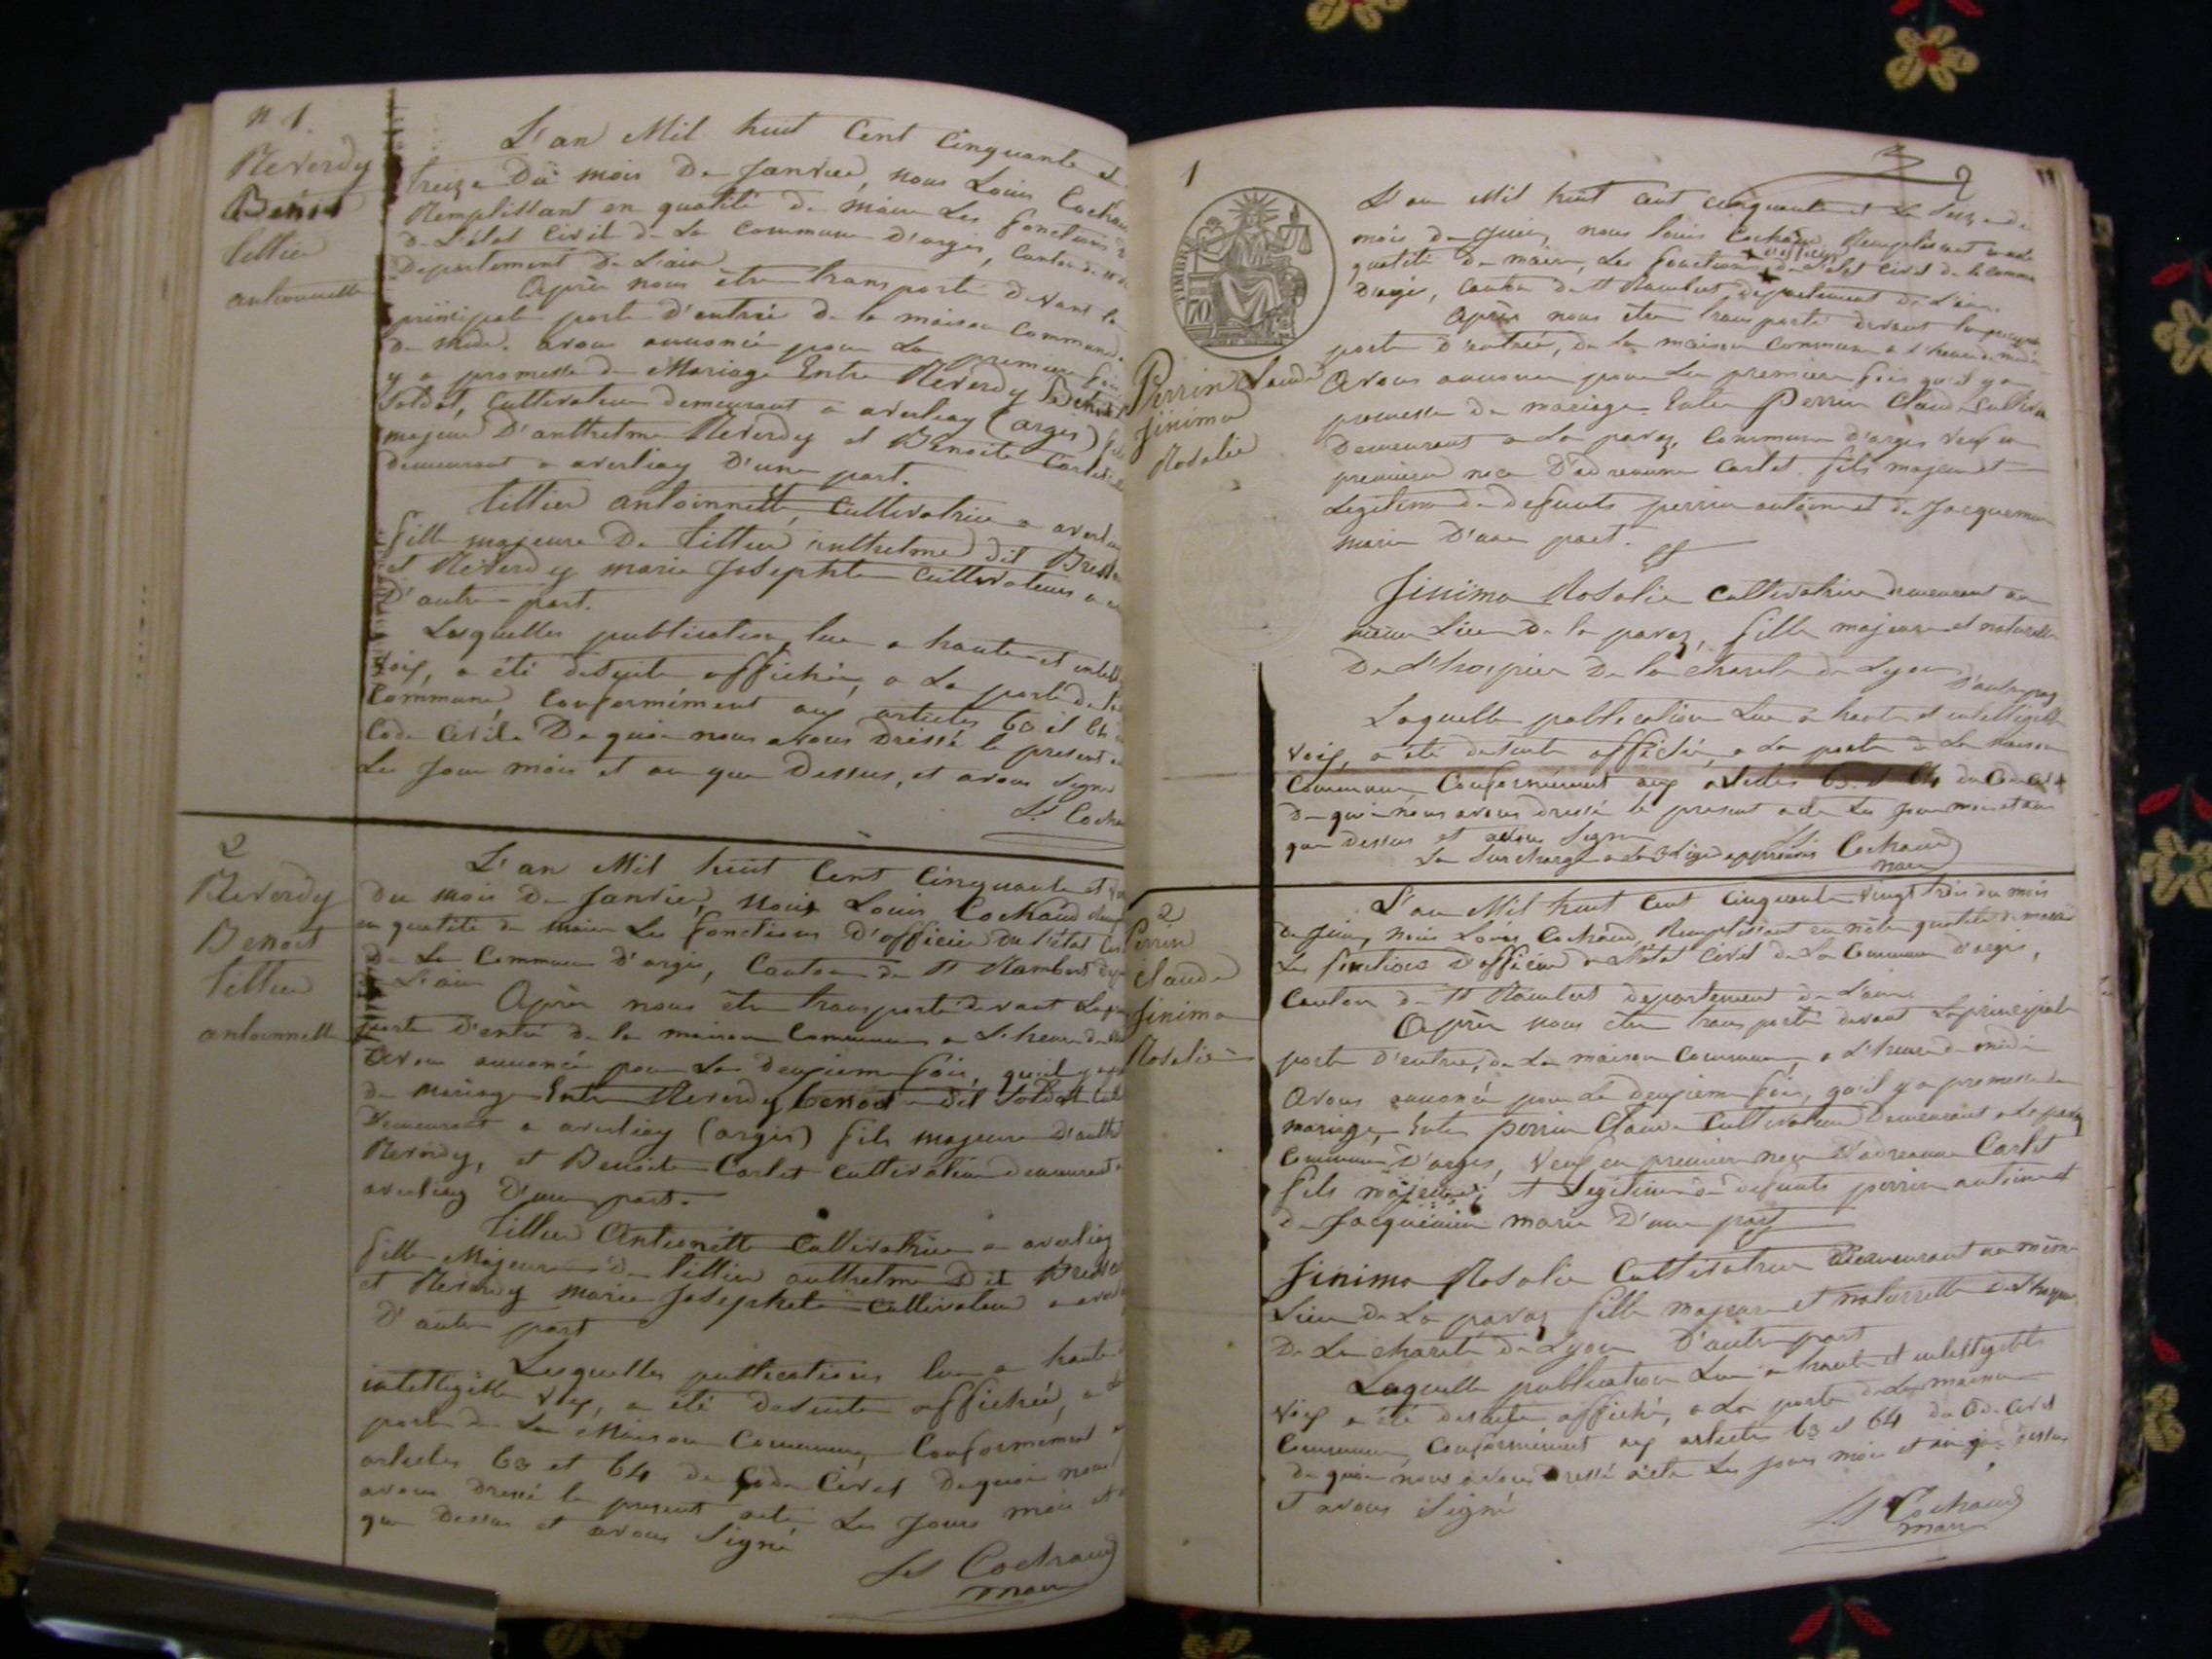 n 1
Reverdy
Benoit
tillier
antoinnette
L'an Mil huit Cent Cinquante et
treize Du mois De Janvier, nous Louis Cochaud
Remplissant en qualité de maire Les fonctions d
De L'état Civil de La Commune D'argis, Canton de
Departement De L'ain
Après nous être transporté devant la
principale porte d'entrée De la maison Commune
De midi. avons annoncé pour La première fois
y a promesse de Mariage Entre Reverdy Benoit
Soldat, Cultivateur demeurant a averliaz (argis) fils
majeur D'anthelme Reverdy et Benoite Carlet
demeurant a averliaz D'une part.
tillier antoinnette, Cultivatrice a averliaz
fille majeure De tillier anthelme Dit
et Reverdy marie Josephte Cultivateurs a
D'autre part.
Lesquelles publication lue a haute et intelli
voix, a été desuite affichée, a La porte de la
Commune, Conformément aux articles 63 et 64
Code Civile De quoi nous avons Dressé le present
Les Jour mois et an que Dessus, et avons signé
Ls Cocha
2
Reverdy
Benoit
tillier
antoinnette
L'an Mil huit Cent Cinquante et
du mois De Janvier, nous Louis Cochaud
en qualité de maire Les fonctions D'officier De l'état
De La Commune D'argis, Canton de St Rambert
L'ain
Après nous être transporté devant La
porte D'entrée De la maison Commune a L'heure de
avons annoncé pour La deuxième fois, qu'il y a
de mariage Entre Reverdy benoit dit Soldat
Demeurant a averliaz (argis) fils majeure D'anthe
Reverdy, et Benoite Carlet cultivateur demeurant
averliaz D'une part.
tillier Antionette Cultivatrice a averliaz
fille Majeure De tillier anthelme Dit
et Reverdy marie Josephete Cultivateur a
D'autre part
Lesquelles publications lue a haute
intelligible voix, a été Desuite affichée, a la
porte de La Maison Commune, Conformement
articles 63 et 64 du Code Civil De quoi nous
avons dressé le present acte Les Jours mois et
que Dessus et avons Signé
Ls Cochaud
maire
1
TIMBRE
70
Perrin Claude
Jinima
Rosalie
L'an Mil huit cent cinquante et Le
mois de Juin, nous Louis Cochaud, Remplissant en
qualité De maire, Les fonctions d'officier De l'état Civil de la Commune
D'argis, Canton de St Rambert, departement de L'ain.
Après nous être transporté devant la principale
porte d'entrée, de la maison Commune a l'heure de midi
Avons annoncé pour La première fois qu'il y a
promesse De mariage Entre Perrin Claude Cultiva
Demeurant a La pavaz, Commune d'argis veuf en
première noce D'adreanne Carlet fils majeur et
Legitime de defunts perrin antoine et de Jacquemin
marie D'une part.
et
Jinima Rosalie Cultivatrice demeurant au
même Lieu De la pavaz, fille majeure et naturelle
De L'hospice De la charité de Lyon D'autre part
Laquelle publication Lue a haute et intelligible
voix, a été desuite affiché, a La porte de La maison
Commune Conformément aux articles 63 et 64 du Code Civil
de quoi nous avons dressé le present acte Les Jour mois et an
que dessus et avons Signé
La surcharge a la ligne approuvée Ls Cochaud
maire
2
Perrin
claude
Jinima
Rosalie
L'an Mil huit Cent Cinquante vingt trois du mois
de Juin, nous Louis Cochaud, Remplissant en nôtre qualité de maire
Les fonctions d'officier De l'état Civil de La Commune D'argis,
Canton de St Rambert departement de L'ain
Après nous être transporté devant La principale
porte d'entrée, de La maison Commune, a L'heure de midi
Avons annoncé pour La deuxième fois, qu'il y a promesse de
mariage, Entre perrin Claude Cultivateur Demeurant a La pavaz
Commune D'argis, Veuf en première noce D'adreanne Carlet
fils majeur et Legitime De defunts perrin antoine et
de Jacquemin marie D'une part
Jinima Rosalie Cultivatrice Demeurant au même
Lieu De La pavaz fille majeure et naturelle de L'hospice
De La charité De Lyon D'autre part
Laquelle publication Lue a haute et intelligible
voix a été desuite affiché, a La porte de La maison
Commune, Conformément aux articles 63 et 64 du Code Civil
de quoi nous avons Dressé acte Les jours mois et an que dessus
et avons Signé
Ls Cochaud
maire